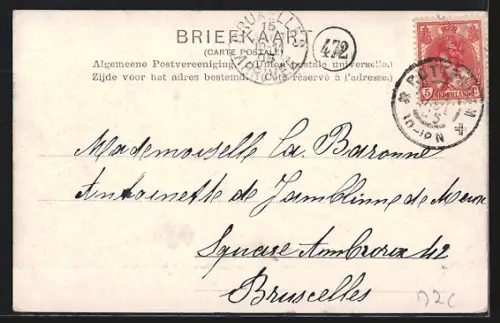 BRIEFKAART
(CARTE POSTALE)
Algemeene Postvereeniging. (Union postale universelle.)
Zijde voor het adres bestemd. (Côté réservé à l'adresse.)
BRUXELLES
15
472
NEDERLAND
5
10-12N
Mademoiselle La Baronne
Antoinette de Jamblinne de Meux
Square Ambiorix 42
Bruxelles